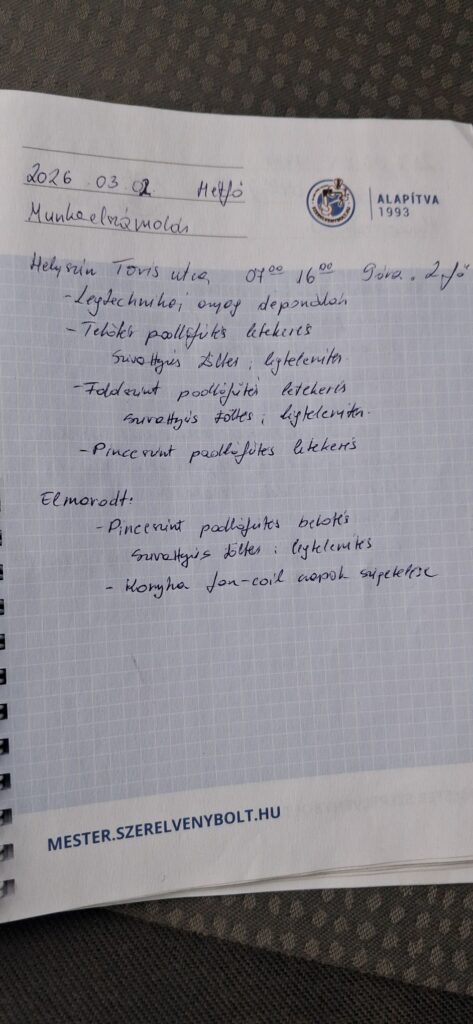 2026 03 02 Hétfő
Munkaelszámolás
ALAPÍTVA
1993
Helyszín Toris utca, 07⁰⁰ 16⁰⁰ 9óra. 2fő
- Légtechnikai anyag deponálás
- Tetőtér padlófűtés letekerés
szivattyús töltés; légtelenítés
- Földszint padlófűtés letekerés
szivattyús töltés; légtelenítés.
- Pinceszint padlófűtés letekerés
Elmaradt:
- Pinceszint padlófűtés bekötés
szivattyús töltés; légtelenítés
- Konyha fan-coil csapok szigetelése
MESTER.SZERELVENYBOLT.HU